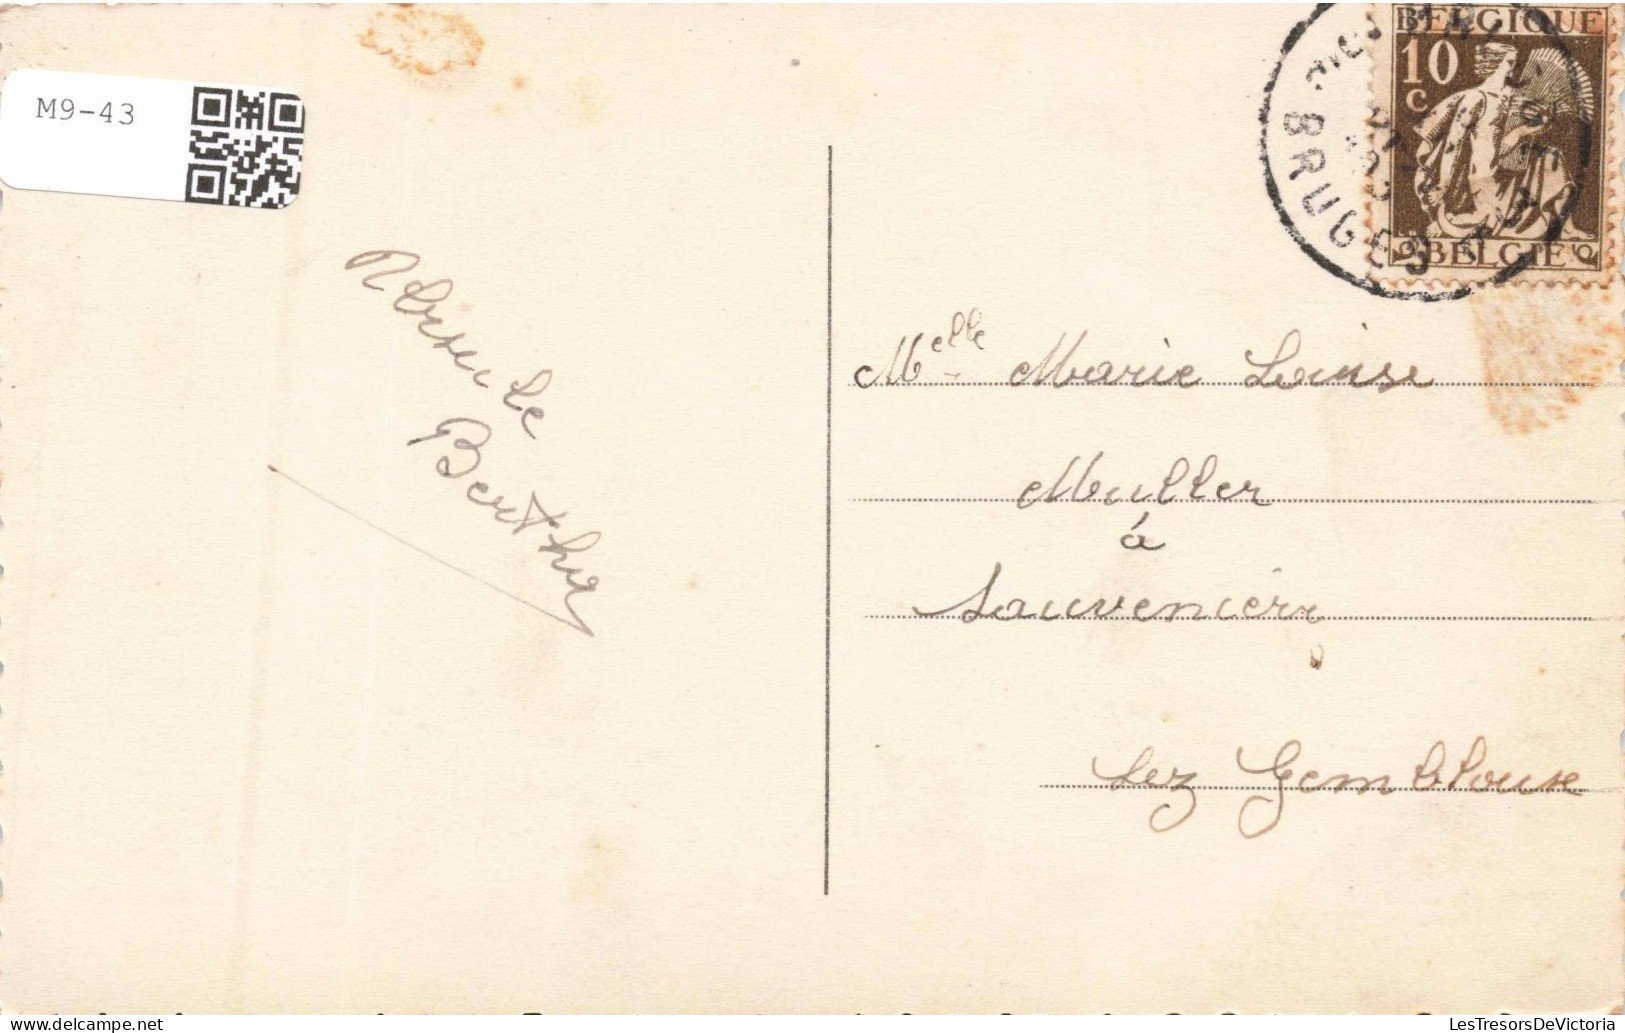 M9-43
BELGIQUE
10
C
BELGIE
BRUGES
Berthe
Melle Marie Louise
Muller
à
Sauvenière
Lez Gembloux
LesTresorsDeVictoria